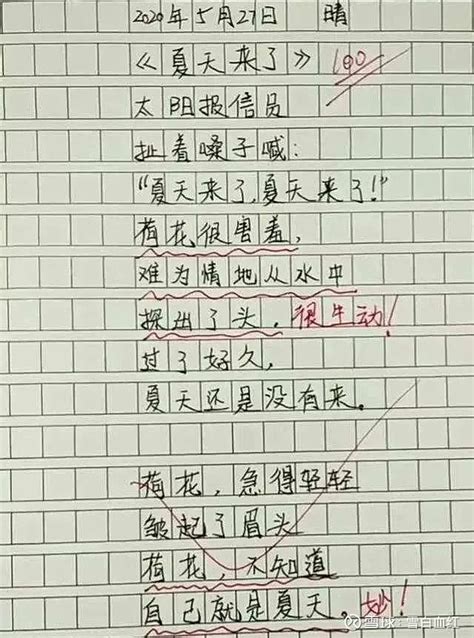 2020年5月27日 晴
《夏天来了》 100
太阳报信员
扯着嗓子喊:
"夏天来了,夏天来了!"
荷花很害羞,
难为情地从水中
探出了头。很生动!
过了好久,
夏天还是没有来。
荷花,急得轻轻
皱起了眉头
荷花,不知道
自己就是夏天。妙!
雪球:雪白血红